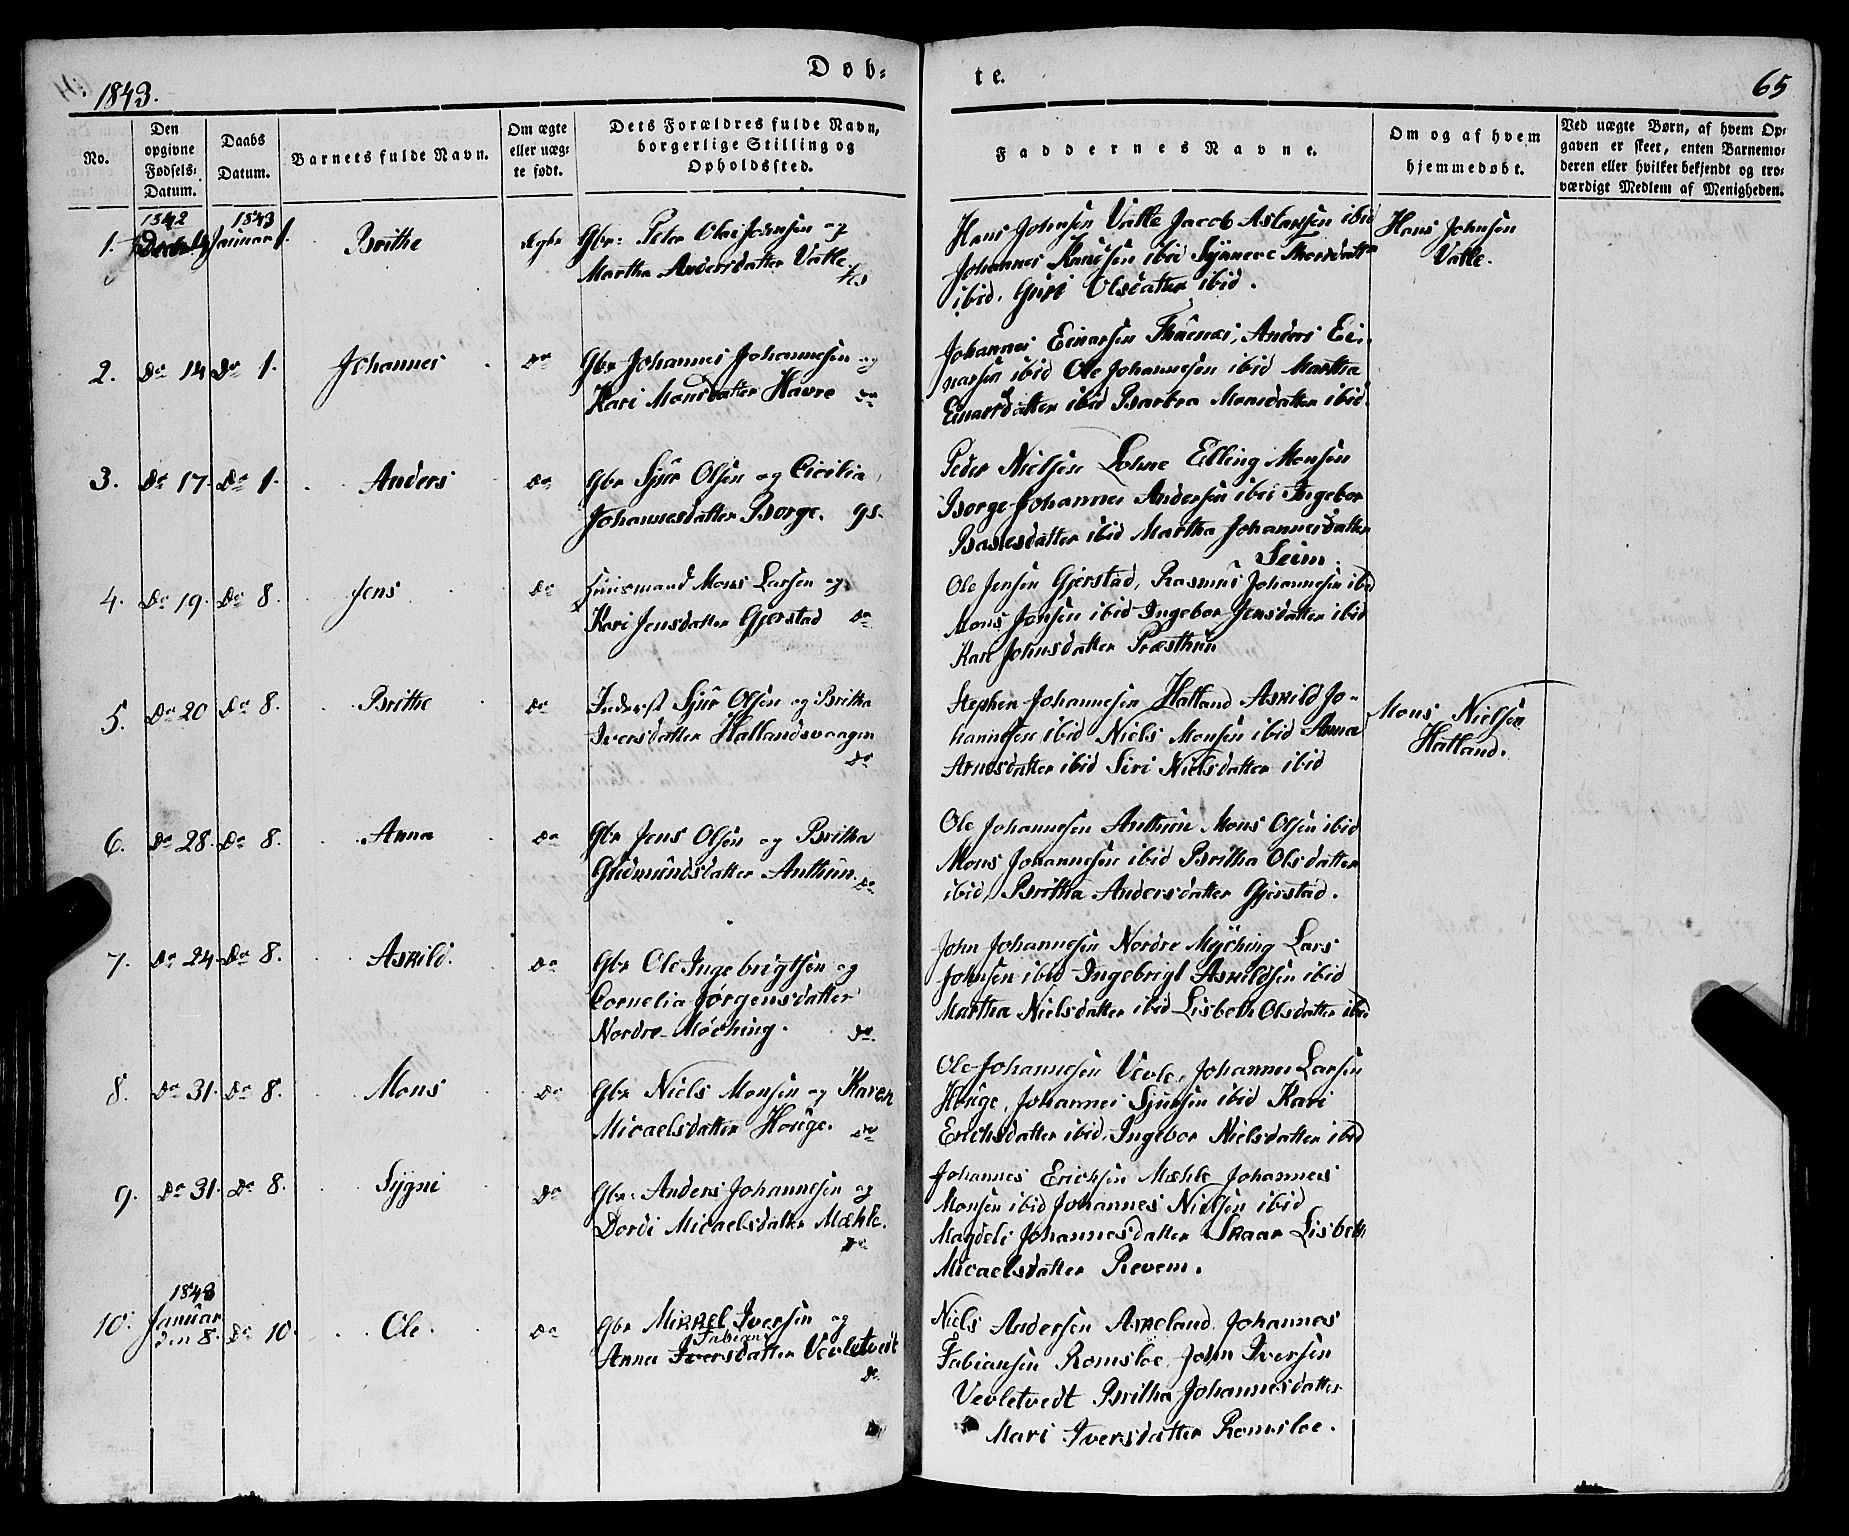 1843.
Døb-
te.
65
No.
Den opgivne Fødsels-Datum.
Daabs Datum.
Barnets fulde Navn.
Om ægte eller uægte født.
Dets Forældres fulde Navn, borgerlige Stilling og Opholdssted.
Faddernes Navne.
Om og af hvem hjemmedøbt.
Ved uægte Børn, af hvem Opgaven er skeet, enten Barnemoderen eller hvilket bekjendt og troværdigt Medlem af Menigheden.
1842 1843
1. Januar 1. Brithe Ægte Gbr: Peter Olai Johnsen og
Martha Andersdatter Valle
Hans Johnsen Valle Jacob Aslaksen ibid
Johannes Knudsen ibid Synneve
ibid. Guri Olsdatter ibid.
Hans Johnsen
Valle.
2. Do 14 Do 1. Johannes Do Gbr Johannes Johannesen og
Kari Monsdatter Havre Do
Johannes Einarsen Anders Ei-
narsen ibid Ole Johannesen ibid Martha
Einarsdatter ibid Barbra Monsdatter ibid.
3. Do 17. Do 1. Anders Do Gbr Sjur Olsen og Cicilia
Johannesdatter Borge. gs.
Peder Nielsen Lohne Elling Monsen
Borge Johannes Andersen ibid Ingebor
Baslesdatter ibid Martha Johannesdatter
Seim.
4. Do 19. Do 8. Jens Do Huusmand Mons Larsen og
Kari Jensdatter Gjerstad Do
Ole Jensen Gjerstad, Rasmus Johannesen ibid
Mons Jensen ibid Ingebor Jensdatter ibid
Kari Johnsdatter Præsthun
5. Do 20 Do 8. Brithe Do Inderst Sjur Olsen og Britha
Iversdatter Hallandsvaagen
Do
Stephen Johannesen Hatland Askild Jo-
hannesen ibid Niels Monsen ibid Anna
Arnesdatter ibid Siri Nielsdatter ibid
Mons Nielsen
Hatland.
6. Do 28. Do 8. Anna Do Gbr Jens Olsen og Britha
Gudmundsdatter Anthun. Do
Ole Johannesen Anthun Mons Olsen ibid
Mons Johannesen ibid Britha Olsdatter
ibid, Britha Andersdatter Gjerstad.
7. Do 24 Do 8. Askild. Do Gbr Ole Ingebrigtsen og
Cornelia Jørgensdatter
Nordre Møching. Do.
John Johannesen Nordre Myching Lars
Johnsen ibid Ingebrigt Askildsen ibid
Martha Nielsdatter ibid Lisbeth Olsdatter ibid
8. Do 31. Do 8. Mons Do Gbr Niels Monsen og Karen
Micaelsdatter Houge. Do
Ole Johannesen Vevle, Johannes Larsen
Houge, Johannes Sjursen ibid Kari
Erichsdatter ibid, Ingebor Nielsdatter ibid
9. Do 31. Do 8. Sygni Do Gbr: Anders Johannesen og
Dordi Micaelsdatter Mæhle.
Do
Johannes Erichsen Mæhle Johannes
Monsen ibid Johannes Nielsen ibid
Magdeli Johannesdatter Skaar Lisbeth
Micaelsdatter Revem.
1843
10. Januar
den 8. Do 10. Ole. Do Gbr Mikkel Iversen og
Fabians
Anna Iversdatter Vevletvedt
Do
Niels Andersen Askeland. Johannes
Fabiansen Romsloe John Iversen
Vevletvedt Britha Johannesdatter
Mari Iversdatter Romsloe.